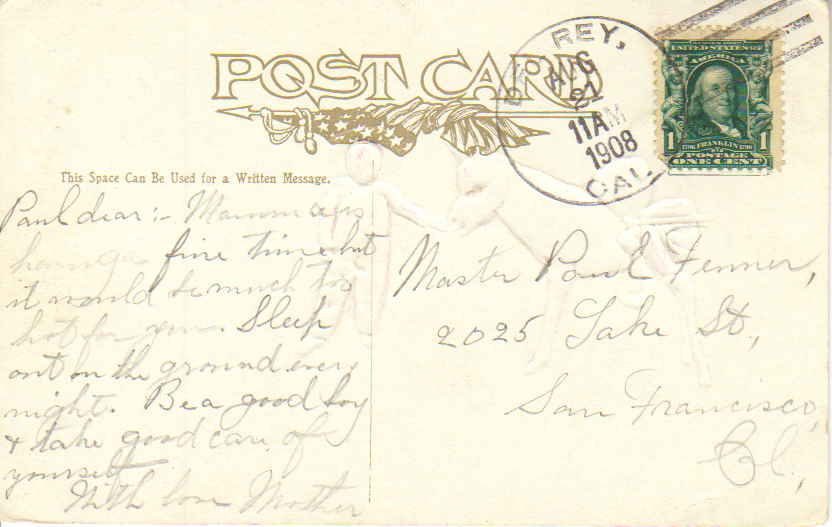 POST CARD
DEL REY,
AUG
21
11 AM
1908
CAL
UNITED STATES OF
AMERICA
1 1
FRANKLIN
POSTAGE
ONE CENT
This Space Can Be Used for a Written Message.
Paul dear:- Mamma is
having a fine time but
it would be much too
hot for you. Sleep
out on the ground every
night. Be a good boy
& take good care of
yourself
With love Mother
Master Paul Fenner,
2025 Lake St,
San Francisco,
Cl,